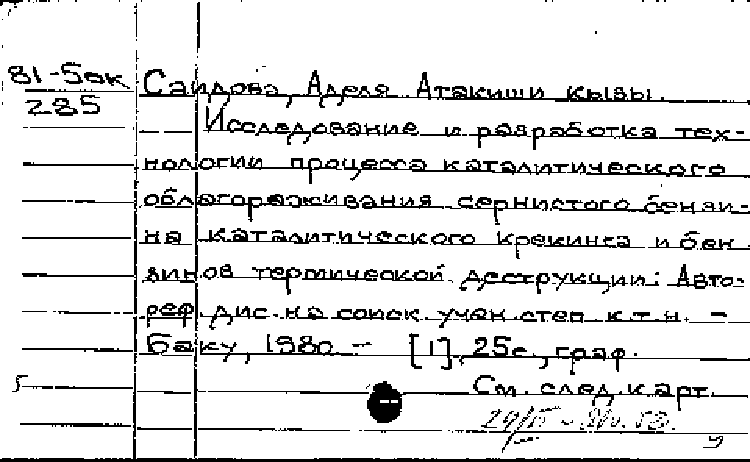 81-5ак
285
Саидова, Аделя Атакиши кызы.
Исследование и разработка тех-
нологии процесса каталитического
облагораживания сернистого бензи-
на каталитического крекинга и бен-
зинов термической деструкции: Авто-
реф. дис. на соиск. учен. степ. к.т.н. –
Баку, 1980. – [1], 25с., граф.
См. след. карт.